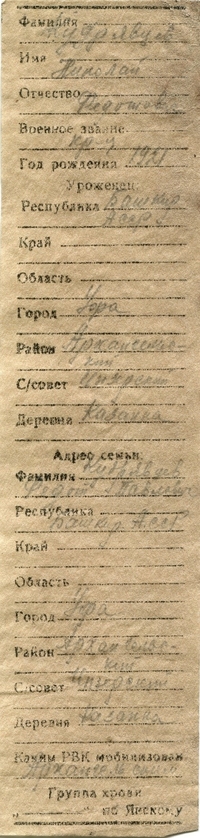 Фамилия Кудрявцев
Имя Николай
Отчество Федотов.
Военное звание
Год рождения 1921
Уроженец:
Республика Башкир
Асср
Край
Область
Город Уфа
Район Архангель-
кий
С/совет
Деревня Казанка
Адрес семьи:
Фамилия Кудрявцев
Федот Павлович
Республика
Башкир. АССР
Край
Область
Город Уфа
Район Архангель-
кий
С/совет
Деревня Казанка
Каким РВК мобилизован
Архангельским
Группа крови
„ “ по Янскому